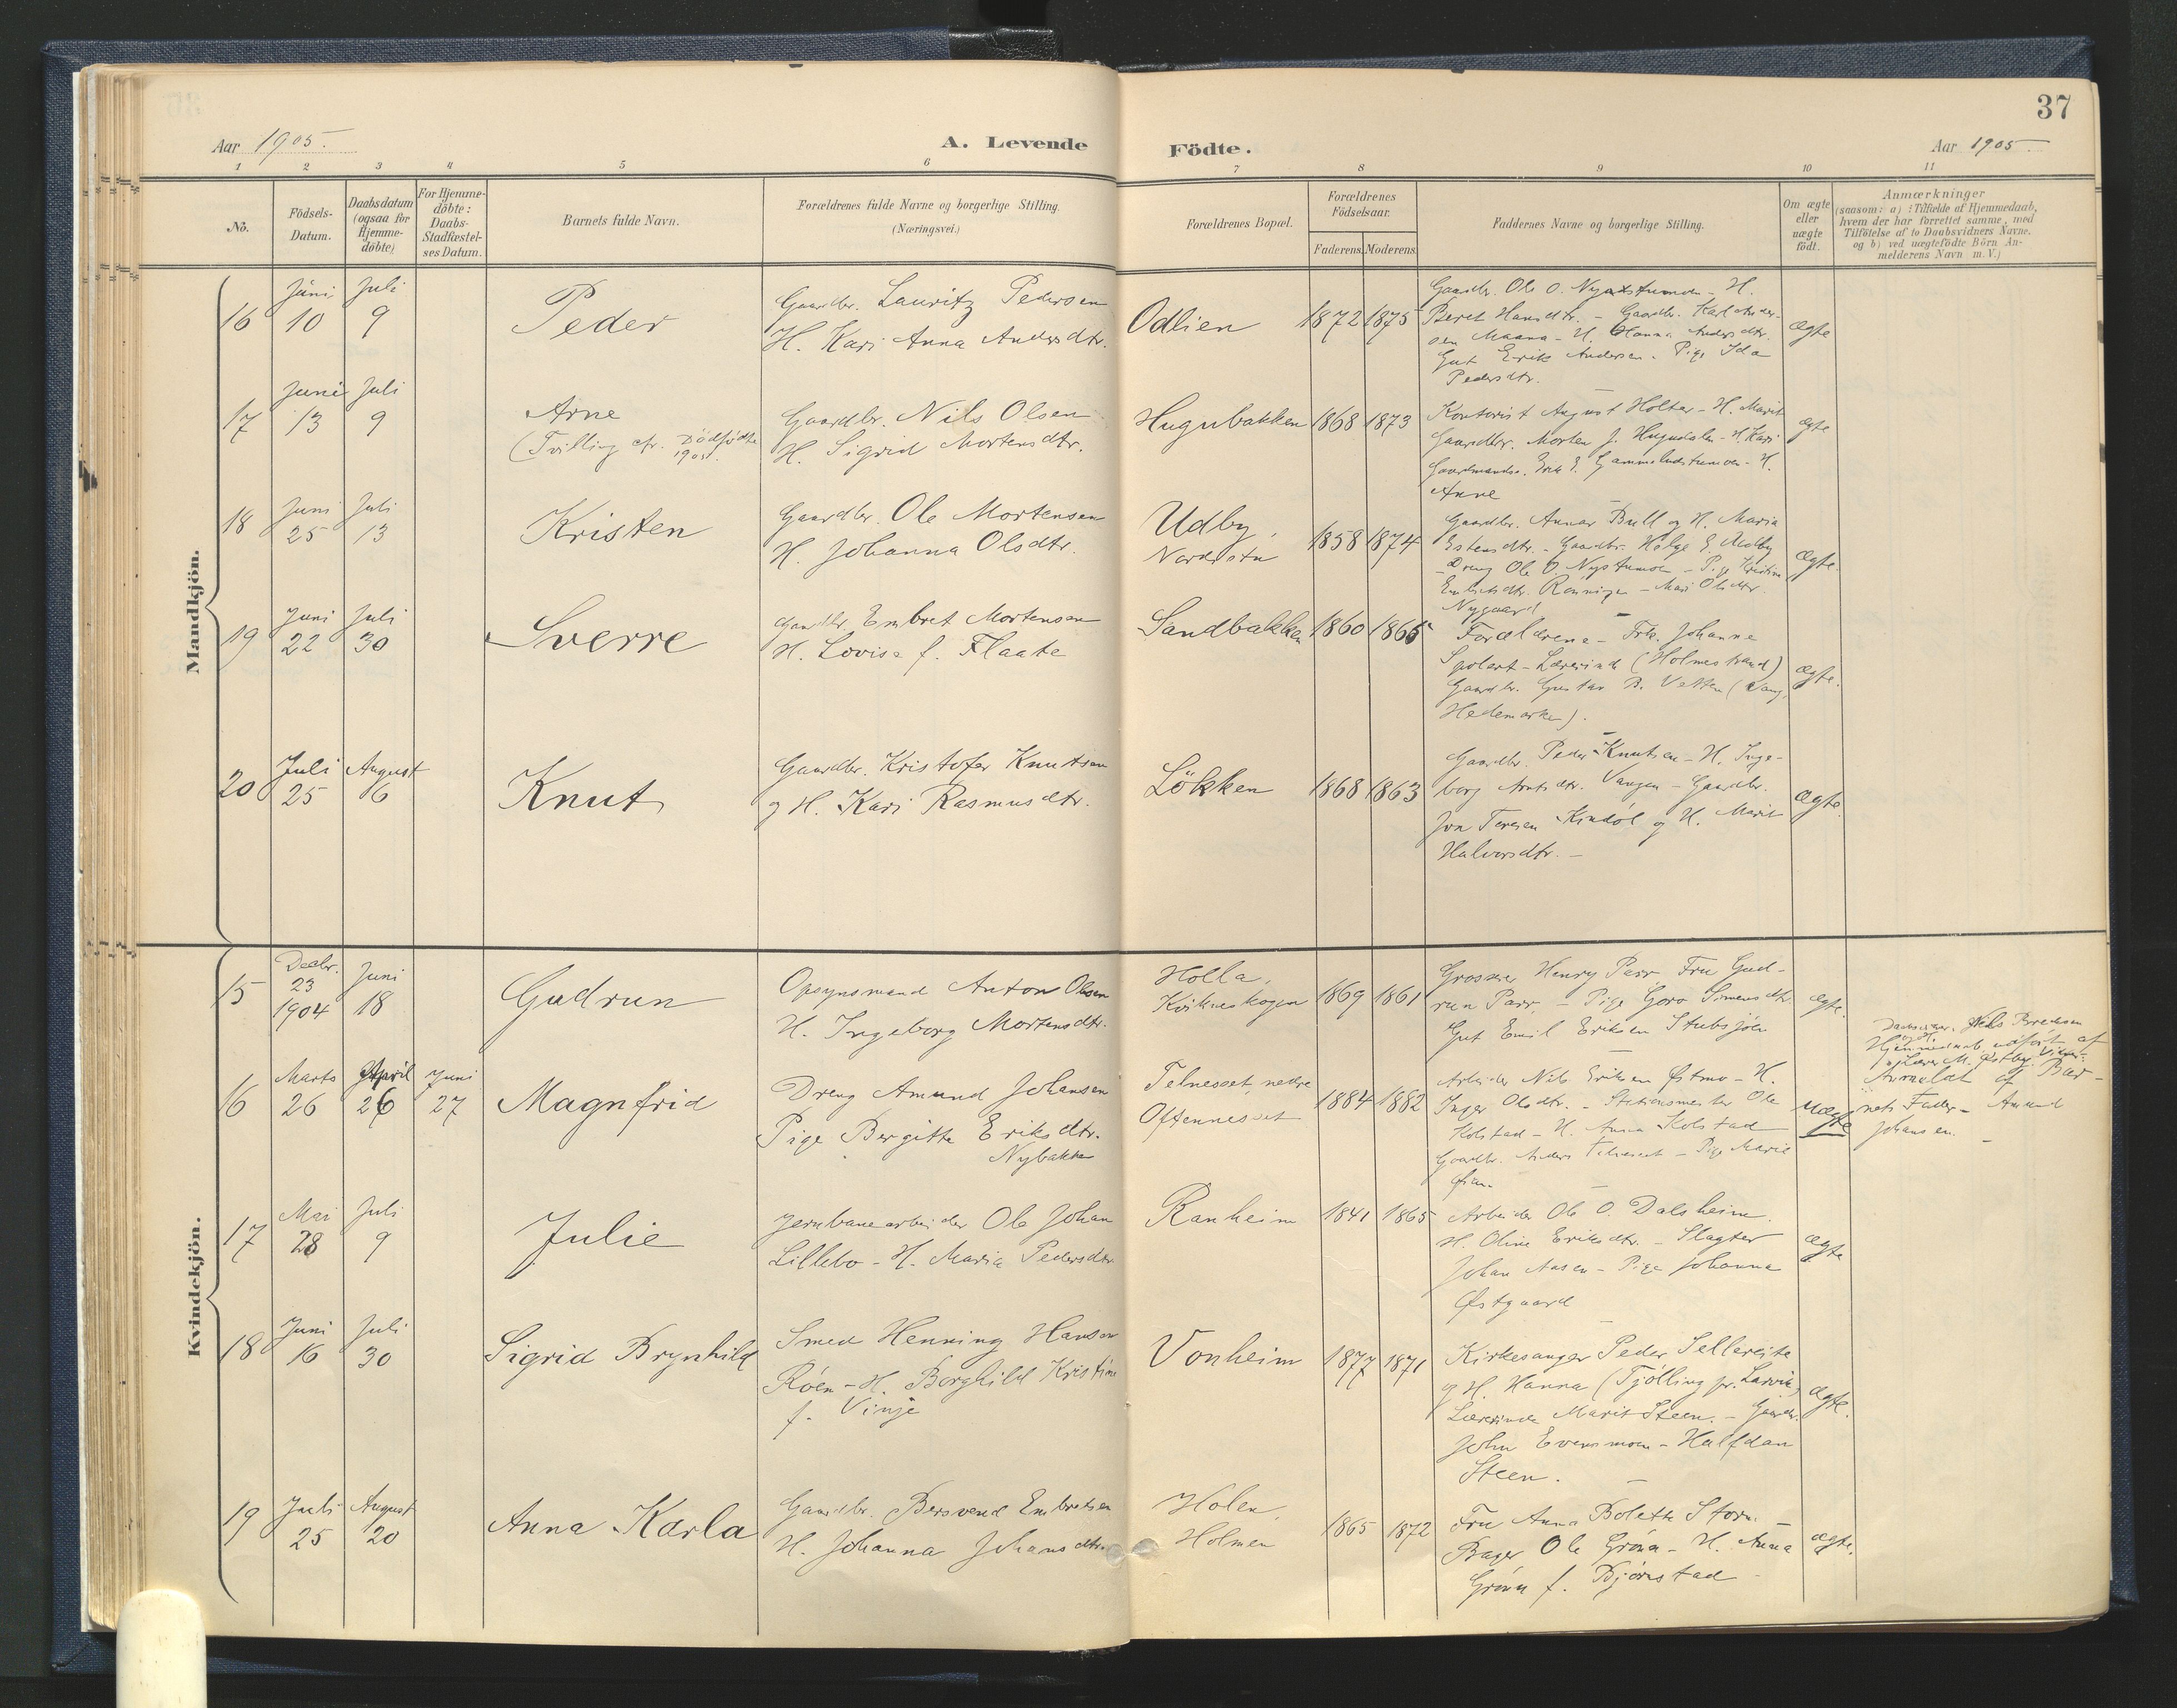 37
Aar 1905.
A. Levende Födte.
Aar 1905
1 2 3 4 5 6 7 8 9 10 11
No.
Födsels-
Datum.
Daabsdatum
(ogsaa for
Hjemme-
döbte)
For Hjemme-
döbte:
Daabs-
Stadfæstel-
ses Datum.
Barnets fulde Navn.
Forældrenes fulde Navne og borgerlige Stilling.
(Næringsvei.)
Forældrenes Bopæl.
Forældrenes
Födselsaar.
Faderens Moderens
Faddernes Navne og borgerlige Stilling.
Om ægte
eller
uægte
födt.
Anmærkninger
(saasom: a) i Tilfælde af Hjemmedaab,
hvem der har forrettet samme, med
Tilföielse af to Daabsvidners Navne.
og b) ved uægtefödte Börn An-
melderens Navn m.V.)
Mandkjön.
16
Juni
10
Juli
9
Peder
Gaardbr. Lauritz Pedersen
H. Kari Anna Andersdtr.
Odlien
1872
1875
Gaardbr. Ole O. - H.
Beret Hansdtr. - Gaardbr. Karl Ander-
sen Maana - H. Hanna Andersdtr.
Gut Erik Andersen. Pige Ida
Pedersdtr.
ægte
17
Juni
13
Juli
9
Arne
(Tvilling cfr. Dödfödte
1905.
Gaardbr. Nils Olsen
H. Sigrid Mortensdtr.
Hugubakken
1868
1873
Kontorist August Holter - H. Marit
Gaardbr. Morten J. Hugudalen - H. Kari
Gaardmands. Erik E. - H.
Anne
ægte
18
Juni
25
Juli
13
Kristen
Gaardbr. Ole Mortensen
H. Johanna Olsdtr.
Udby,
Nordistu
1858
1874
Gaardbr. Annar Bull og H. Maria
Estensdtr. - Gaardbr. Helge E. Udby
Dreng Ole O. Nystumoen - Pige Kristine
Embretsdtr. Rønningen - Mari Olsdtr.
Nygaard
ægte.
19
Juni
22
Juli
30
Sverre
Gaardbr. Embret Mortensen
H. Lovise f. Flaate
Sandbakken
1860
1865
Forældrene - Frk. Johanne
- Lærerinde (Holmestrand)
Gaardbr. Gustav B. Vetten (Vang,
Hedemarken).
ægte.
20
Juli
25
August
6
Knut
Gaardbr. Kristofer Knutsen
og H. Kari Rasmusdtr.
Lökken
1868
1863
Gaardbr. Peder Knutsen - H. Inge-
borg Arntsdtr. Vangen - Gaardbr.
Jon Kindöl og H. Marit
Halvorsdtr. -
ægte.
Kvindekjön.
15
Decbr.
23
1904
Juni
18
Gudrun
Opsynsmand Anton Olsen
H. Ingeborg Mortensdtr.
Holla,
Kvikneskogen
1869
1861
Grosserer Henry Parr, Fru Gud-
run Parr, - Pige Goro Simensdtr.
Gut Emil Eriksen Stubsjöen
ægte.
16
Marts
26
April
26
Juni
27
Magnfrid
Dreng Amund Johansen
Pige Bergitte Eriksdtr.
Nybakken
Telneset, nedre
Oftenneset
1884
1882
Arbeider Nils Eriksen Østmo - H.
Inger Olsdtr. - Stationsmester Ole
Kolstad - H. Anna Kolstad
Gaardbr. Anders Telneset - Pige Marie
uægte
Nils Brediesen
Hjemmedaab udført af
Lærer M. Østby
Anmeldt af Bar-
nets Fader - Amund
Johansen. -
17
Mai
28
Juli
9
Julie
Jernbanearbeider Ole Johan
Lillebo - H. Maria Pedersdtr.
Ranheim
1841
1865
Arbeider Ole O. Dalsheim.
H. Oline Eriksdtr. - Slagter
Johan Aasen - Pige Johanna
Østgaard
ægte
18
Juni
16
Juli
30
Sigrid Brynhild
Smed Henning Hansen
Röen - H. Borghild Kristine
f. Vinje
Vonheim
1877
1871
Kirkesanger Peder Sellereite
og H. Hanna (Tjölling pr. Larvik)
Lærerinde Marit Steen. - Gaardbr.
John Evensmoen - Halfdan
Steen. -
ægte.
19
Juli
25
August
20
Anna Karla
Gaardbr. Bersvend Embretsen
H. Johanna Johansdtr.
Holen,
Holmen
1865
1872
Fru Anna Bolette Storm -
Bager Ole Grøna - H. Anna
Grøna f. Bjørnstad -
ægte.